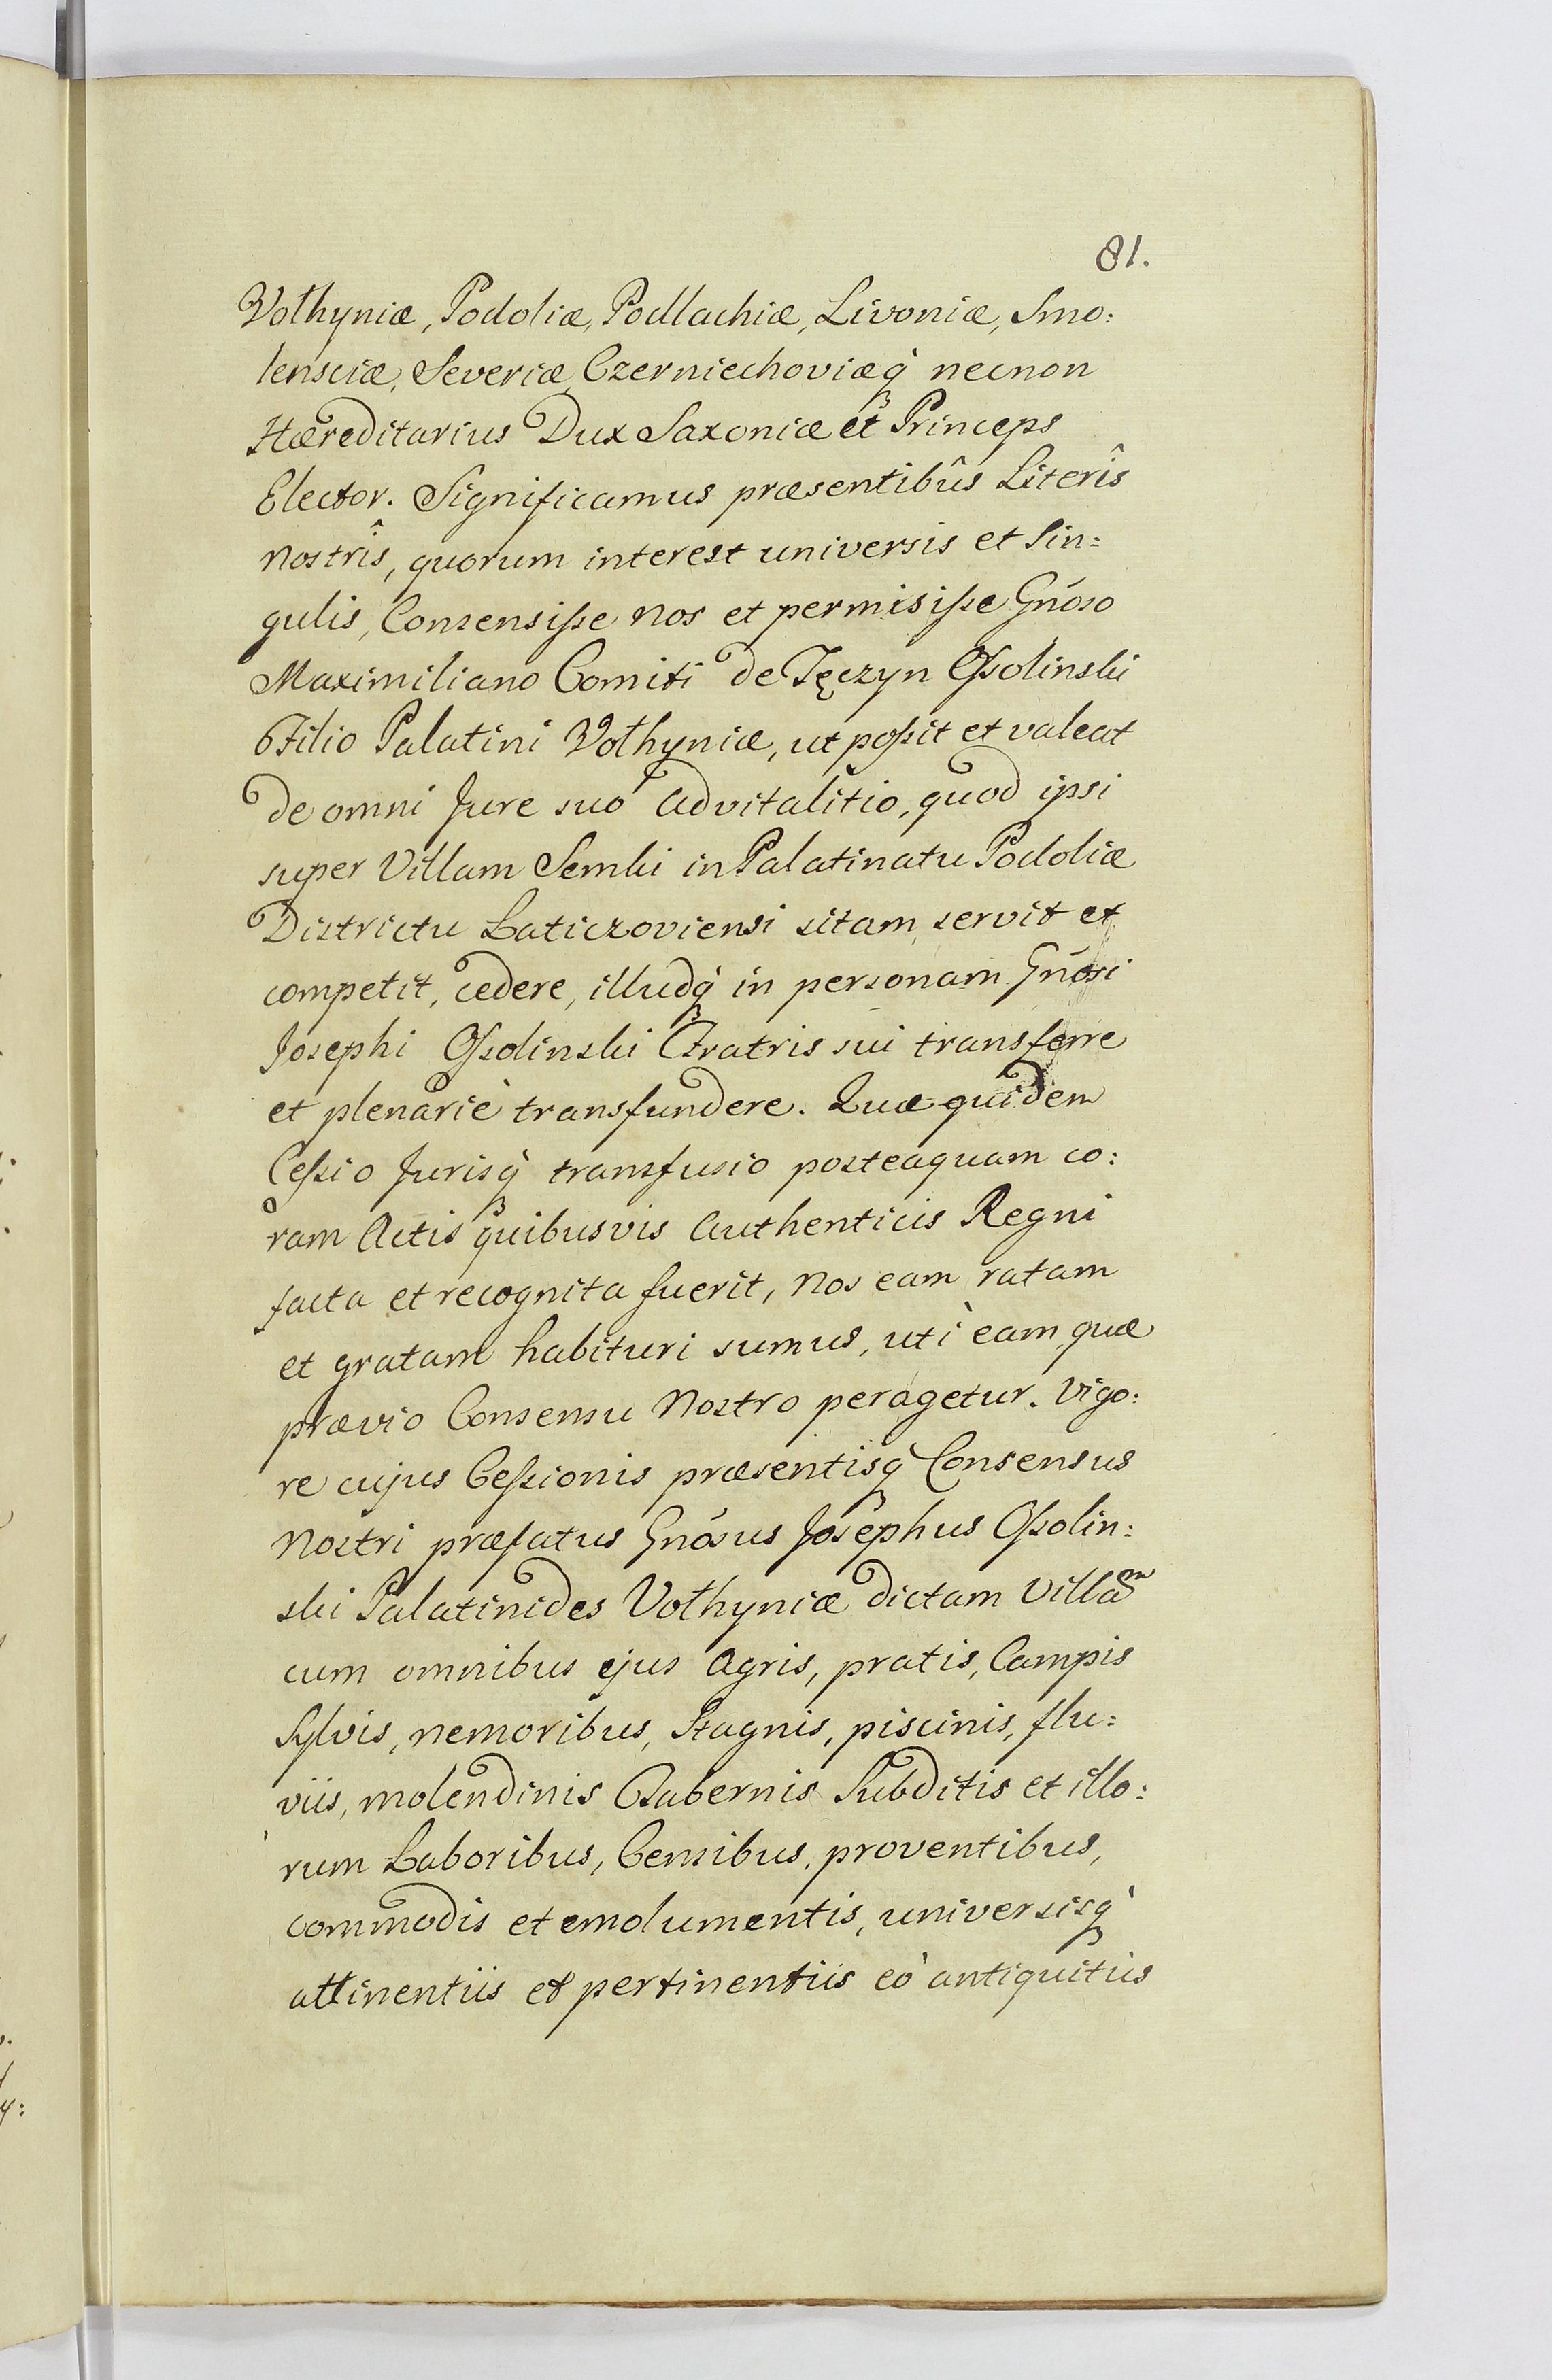 81.
Volhyniæ, Podoliæ, Podlachiæ, Livoniæ, Smo:
lensciæ, Severiæ, Czerniechoviæq̀ necnon
Hæreditarius Dux Saxoniæ et Princeps
Elector. Significamus præsentibûs Literîs
nostrîs, quorum interest universis et sin=
gulis, Consensiſse nos et permisiſse Gnóso
Maximiliano Comiti de Tęczyn Oſsolinski
Filio Palatini Volhyniæ, ut poſsit et valeat
de omni Jure suo advitalitio, quod ipsi
super Villam Semki in Palatinatu Podoliæ
Districtu Laticzoviensi sitam servit et
competit, cedere, illudq̀ in personam Gnósi
Josephi Oſsolinski Fratris sui transferre
et plenariè transfundere. Quæ quidem
Ceſsio Jurisq̀ transfusio posteaquam co:
ram Actis quibusvis Authenticis Regni
facta et recognita fuerit, nos eam ratam
et gratam habituri sumus, utì eam, quæ
prævio Consensu Nostro peragetur. Vigo:
re cujus Ceſsionis præsentisq̀ Consensus
Nostri præfatus Gnósus Josephus Oſsolin:
ski Palatinides Volhyniæ dictam Villaᵐ
cum omnibus ejus agris, pratis, Campis
Sylvis, nemoribus, Stagnis, piscinis, flu:
viis, molendinis Tabernis Subditis et illo:
rum Laboribus, Censibus, proventibus,
commodis et emolumentis, universisq̀
attinentiis et pertinentiis eò antiquitùs